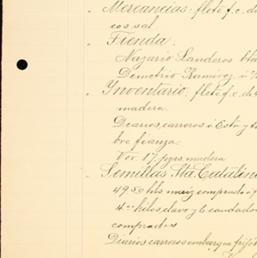 Mercancías. flete f.c. d
cos, sal
Tienda.
Nazario Landeros
Demetrio Ramirez
Inventario. flete f.c. de
madera.
Diarios, carreros i
bre fianza.
Vor. 17. jgrs madera
Semillas Sta. Catalina
49.50 hls maiz comprado
4 " kilos clavo y 6 candados
comprados
Diarios, carreros embarque frijol